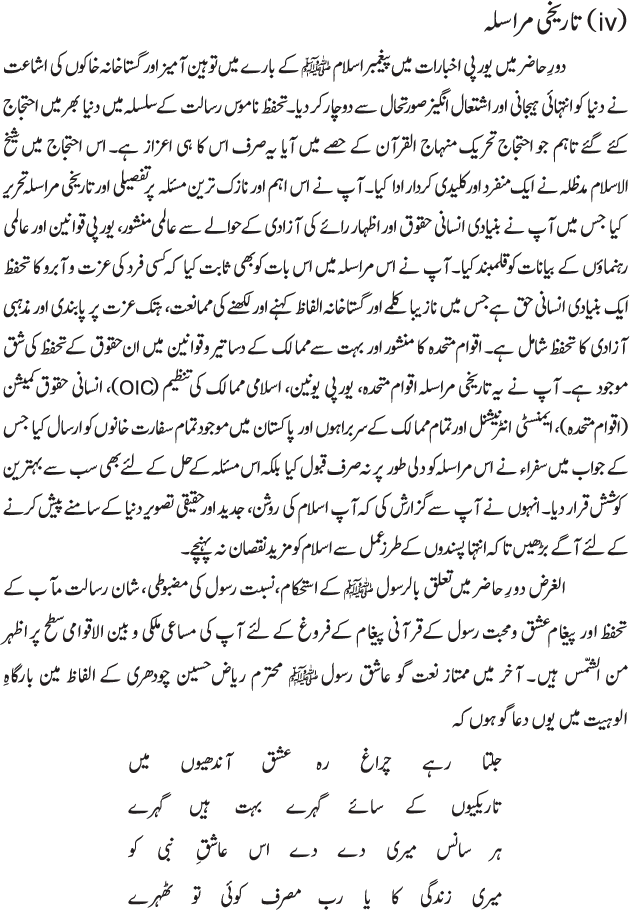 (iv) تاریخی مراسلہ
دورِ حاضر میں یورپی اخبارات میں پیغمبر اسلام ﷺ کے بارے میں توہین آمیز اور گستاخانہ خاکوں کی اشاعت
نے دنیا کو انتہائی ہیجانی اور اشتعال انگیز صورتحال سے دوچار کر دیا۔ تحفظ ناموس رسالت کے سلسلہ میں دنیا بھر میں احتجاج
کئے گئے تاہم جو احتجاج تحریک منہاج القرآن کے حصے میں آیا یہ صرف اس کا ہی اعزاز ہے۔ اس احتجاج میں شیخ
الاسلام مدظلہ نے ایک منفرد اور کلیدی کردار ادا کیا۔ آپ نے اس اہم اور نازک ترین مسئلہ پر تفصیلی اور تاریخی مراسلہ تحریر
کیا جس میں آپ نے بنیادی انسانی حقوق اور اظہار رائے کی آزادی کے حوالے سے عالمی منشور، یورپی قوانین اور عالمی
رہنماؤں کے بیانات کو قلمبند کیا۔ آپ نے اس مراسلہ میں اس بات کو بھی ثابت کیا کہ کسی فرد کی عزت و آبرو کا تحفظ
ایک بنیادی انسانی حق ہے جس میں نازیبا کلمے اور گستاخانہ الفاظ کہنے اور لکھنے کی ممانعت، ہتک عزت پر پابندی اور مذہبی
آزادی کا تحفظ شامل ہے۔ اقوام متحدہ کا منشور اور بہت سے ممالک کے دساتیر و قوانین میں ان حقوق کے تحفظ کی شق
موجود ہے۔ آپ نے یہ تاریخی مراسلہ اقوام متحدہ، یورپی یونین، اسلامی ممالک کی تنظیم (OIC)، انسانی حقوق کمیشن
(اقوام متحدہ)، ایمنسٹی انٹرنیشنل اور تمام ممالک کے سربراہوں اور پاکستان میں موجود تمام سفارت خانوں کو ارسال کیا جس
کے جواب میں سفراء نے اس مراسلہ کو دلی طور پر نہ صرف قبول کیا بلکہ اس مسئلہ کے حل کے لئے بھی سب سے بہترین
کوشش قرار دیا۔ انہوں نے آپ سے گزارش کی کہ آپ اسلام کی روشن، جدید اور حقیقی تصویر دنیا کے سامنے پیش کرنے
کے لئے آگے بڑھیں تاکہ انتہا پسندوں کے طرز عمل سے اسلام کو مزید نقصان نہ پہنچے۔
الغرض دورِ حاضر میں تعلق بالرسول ﷺ کے استحکام، نسبت رسول کی مضبوطی، شان رسالت مآب کے
تحفظ اور پیغام عشق و محبت رسول کے قرآنی پیغام کے فروغ کے لئے آپ کی مساعی ملکی و بین الاقوامی سطح پر اظہر
من الشّمس ہیں۔ آخر میں ممتاز نعت گو عاشق رسول ﷺ محترم ریاض حسین چودھری کے الفاظ مین بارگاہِ
الوہیت میں یوں دعا گو ہوں کہ
جلتا رہے چراغ رہ عشق آندھیوں میں
تاریکیوں کے سائے گہرے بہت ہیں گہرے
ہر سانس میری دے دے اس عاشقِ نبی کو
میری زندگی کا یا رب مصرف کوئی تو ٹھہرے